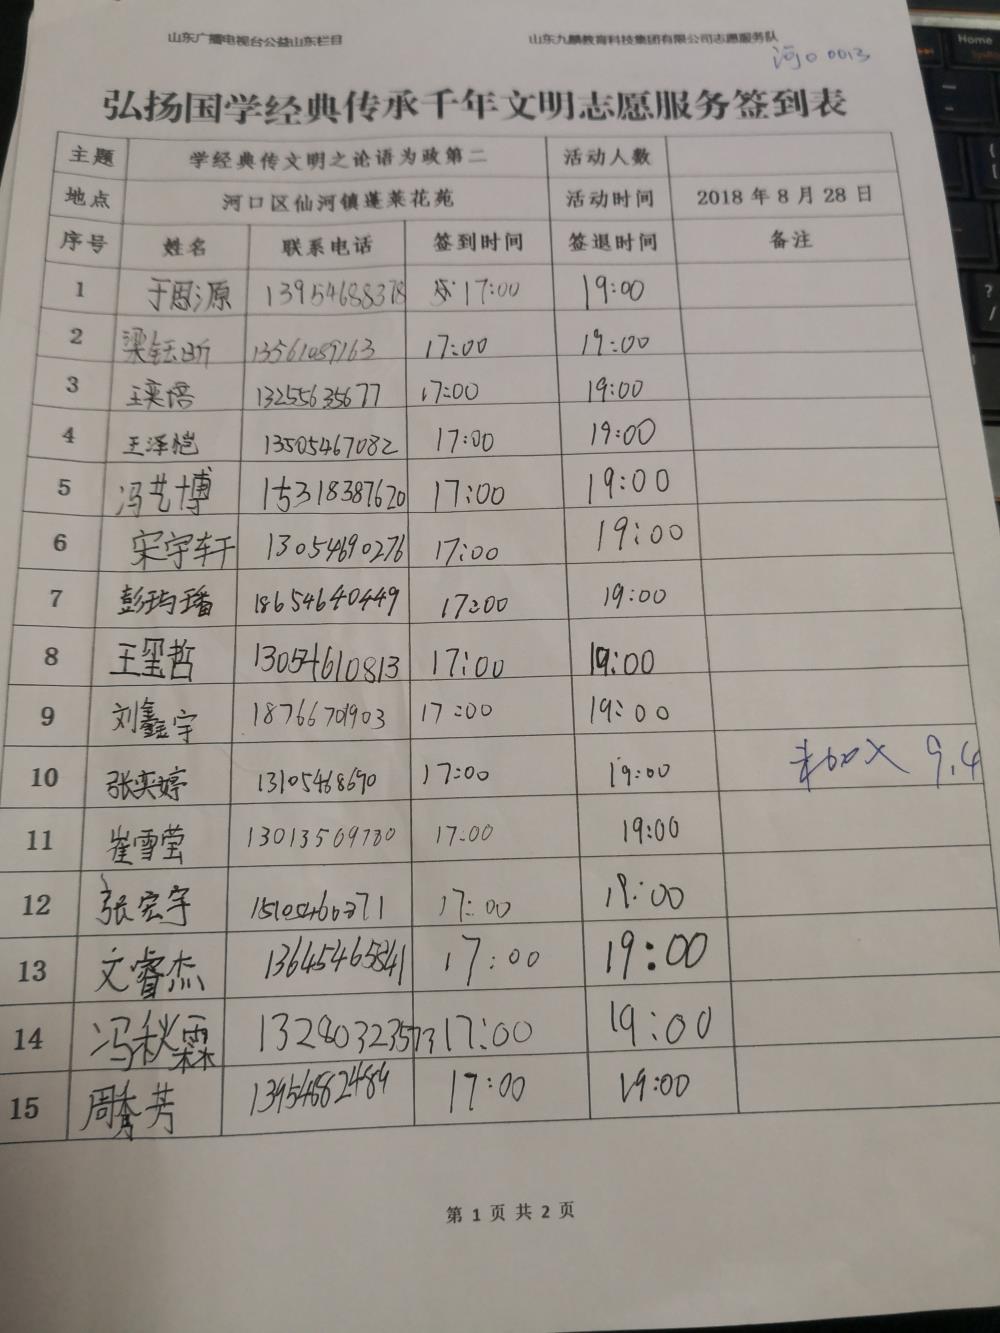 山东广播电视台公益山东栏目 山东九麟教育科技集团有限公司志愿服务队
河口 0013
弘扬国学经典传承千年文明志愿服务签到表
主题 学经典传文明之论语为政第二 活动人数
地点 河口区仙河镇蓬莱花苑 活动时间 2018 年 8 月 28 日
序号 姓名 联系电话 签到时间 签退时间 备注
1 于思源 13954688378 17:00 19:00
2 梁钰昕 13561089163 17:00 19:00
3 王奕蓓 13255635677 17:00 19:00
4 王泽恺 13505467082 17:00 19:00
5 冯艺博 15318387620 17:00 19:00
6 宋宇轩 13054690276 17:00 19:00
7 彭玙璠 18654640449 17:00 19:00
8 王玺哲 13054610813 17:00 19:00
9 刘鑫宇 18766701903 17:00 19:00
10 张奕婷 13105468690 17:00 19:00 未加入 9.4
11 崔雪莹 13013509780 17:00 19:00
12 张宏宇 17:00 19:00
13 文睿杰 13645465841 17:00 19:00
14 冯秋霖 13280323573 17:00 19:00
15 周 芳 13954682489 17:00 19:00
第 1 页 共 2 页